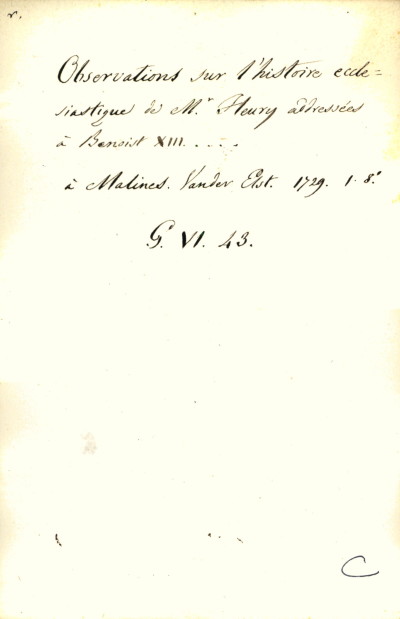 r.
Observations sur l'histoire eccle=
siastique de M.r Fleury addressées
à Benoist XIII. . . . .
à Malines. Vander Elst. 1729. 1. 8.°
G. VI. 43.
C